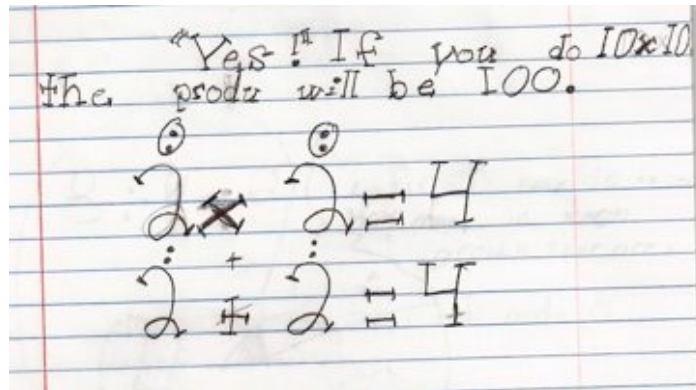 "Yes!" If you do 10x10
the produ will be 100.
2 x 2 = 4
+
2 + 2 = 4